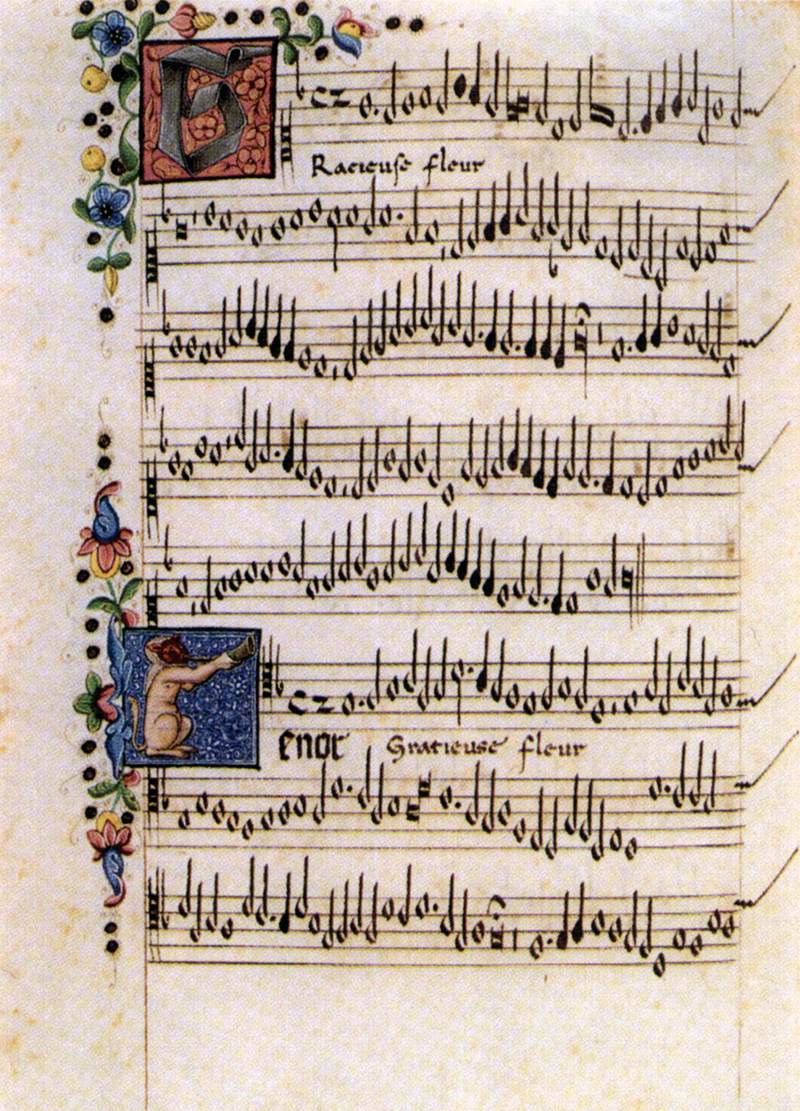 GRacieuse fleur
Tenor Gracieuse fleur